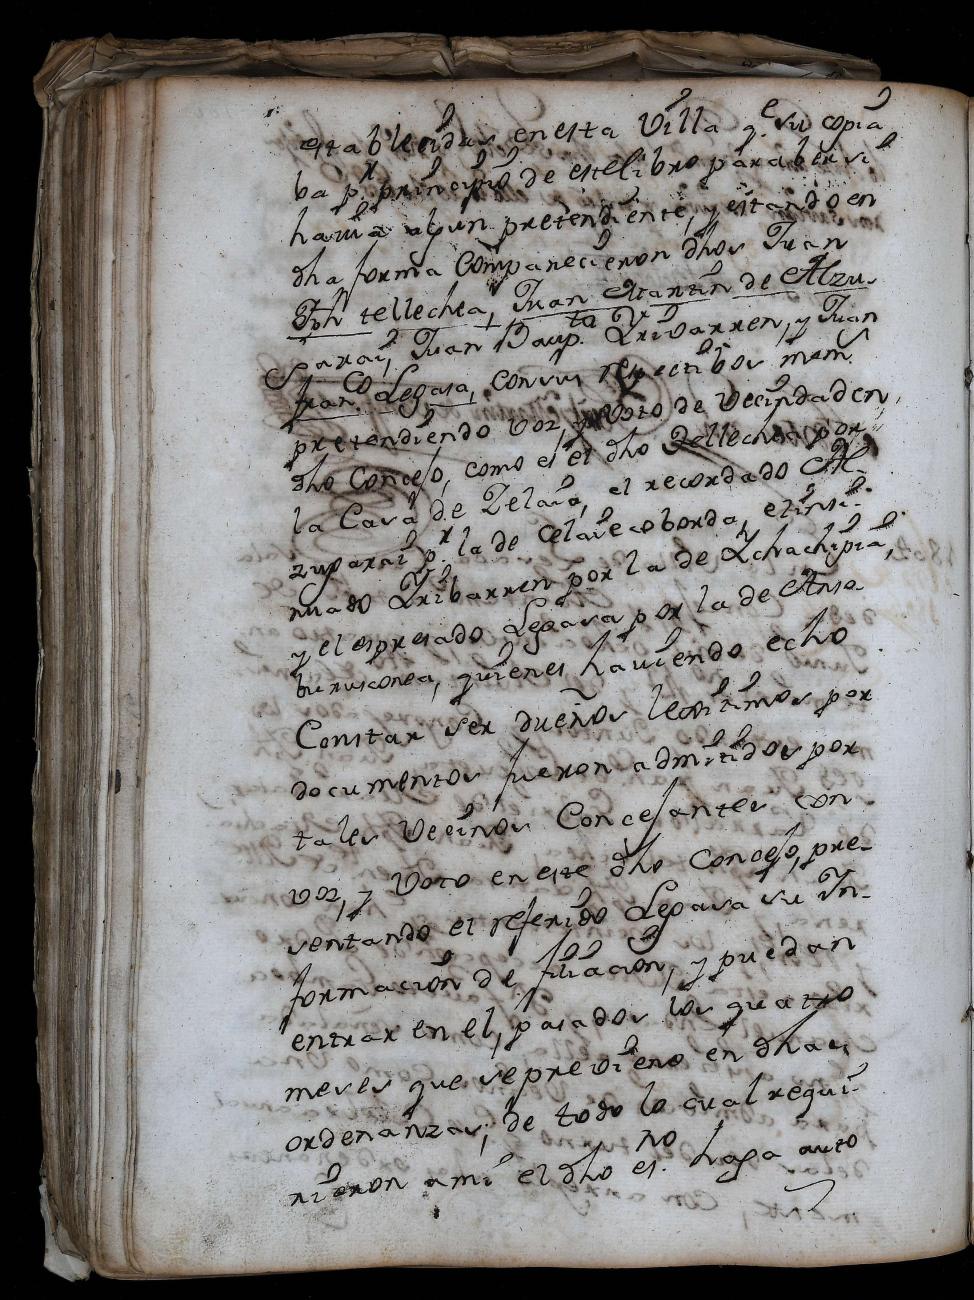 establecidas en esta Villa q.e su copia
ba p.r principio de este libro para ber si
havia algun pretendiente, y estando en
dha forma Comparecieron dhos Juan
Tph tellechea, Juan Martin de Alzu-
garai, Juan Baup.ta Yribarren, y Juan
fran.co Legasa, con sus respectibos mem.s
pretendiendo voz, y voto de Vecindad en
dho Concejo, como es el dho Tellechea por
la Casa de Zelaia, el recordado Al-
zugarai p.r la de Celaiecoborda, el insi-
nuado Yribarren por la de Ychachipia,
y el espresado Legasa por la de Anso-
buruisconea, quienes haviendo echo
Constar ser dueños lexitimos por
documentos fueron admitidos por
tales Vecinos Concejantes con
voz, y Voto en este dho Concejo, pre-
sentando el referido Legasa su Yn-
formacion de filiacion, y puedan
entrar en el, pasados los quatro
meses que se previeno en dhas
ordenanzas; de todo lo cual requi-
rieron a mi el dho es.no haga auto